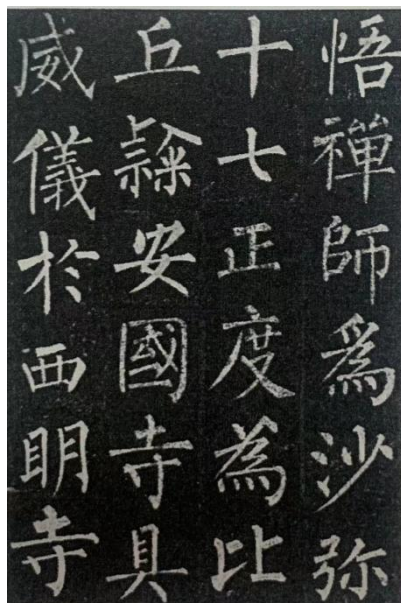 悟禪師為沙弥
十七正度為比
丘隸安國寺具
威儀於西明寺